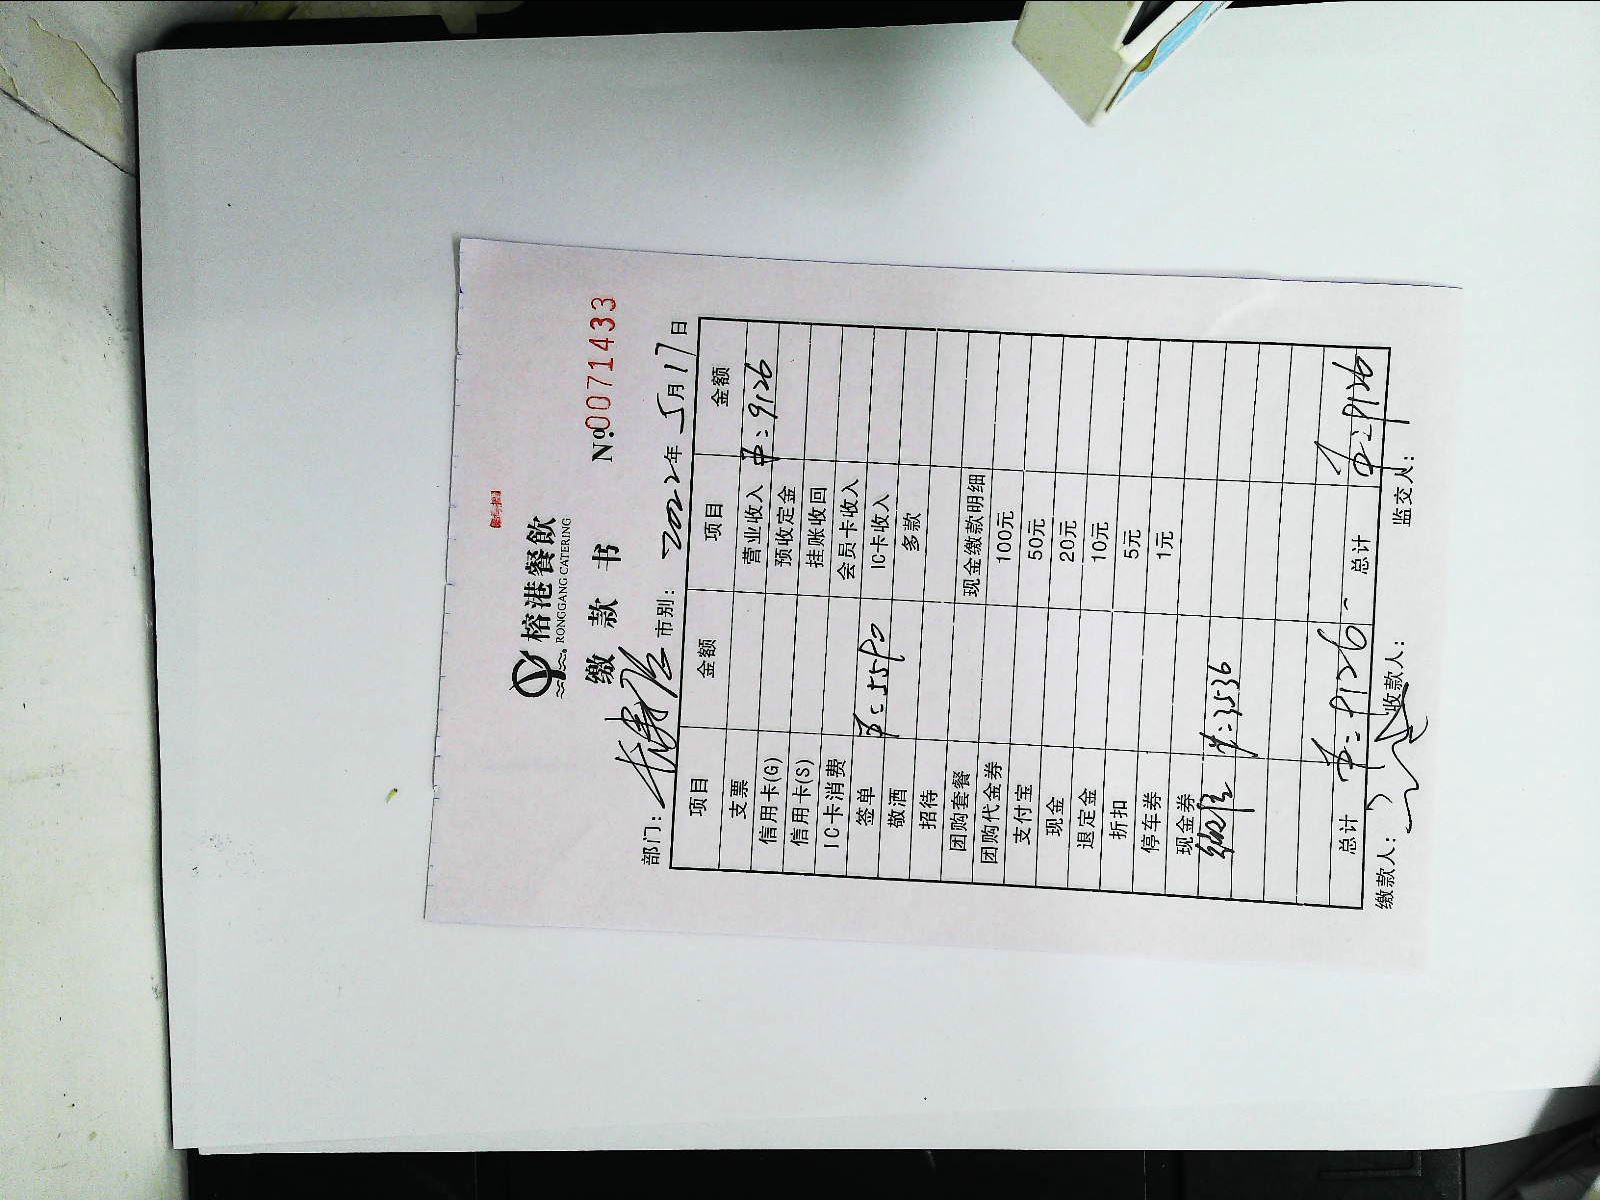 榕港餐飲
RONGGANG CATERING
缴 款 书 №0071433
部门: 市别: 2022年 5月17日
项目 金额 项目 金额
支票 营业收入 ¥:9126
信用卡(G) 预收定金
信用卡(S) 挂账收回
IC卡消费 会员卡收入
签单 ¥:5590 IC卡收入
敬酒 多款
招待
团购套餐 现金缴款明细
团购代金券 100元
支付宝 50元
现金 20元
退定金 10元
折扣 5元
停车券 1元
现金券
¥:3536
总计 ¥:9126- 总计 ¥:9126
缴款人: 收款人: 监交人: